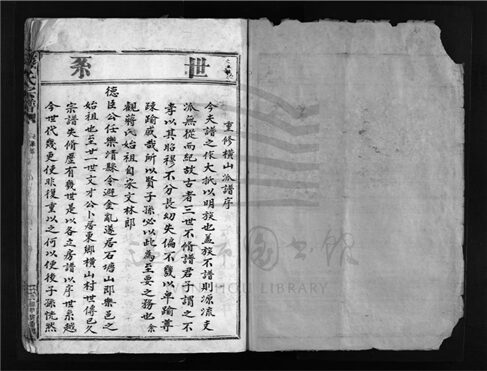 世系
重修横山派譜序
今夫譜之作大抵以明族也蓋族不譜則源流支
派無從而紀故古者三世不脩譜君子謂之不
孝以其昭穆不分長幼失倫不幾以卑踰尊
疎踰戚哉所以賢子孫必以此為至要之務也余
觀蔣氏始祖自宋文林郎
德臣公任樂清縣令避金亂遂居石塘山即樂邑之
始祖也至廿一世文才公卜居東鄉横山村世傳已久
宗譜失脩歷有幾世是以各立房譜以序世系越
今世代幾更使非復重以之何以使後子孫恍然
LIBRARY